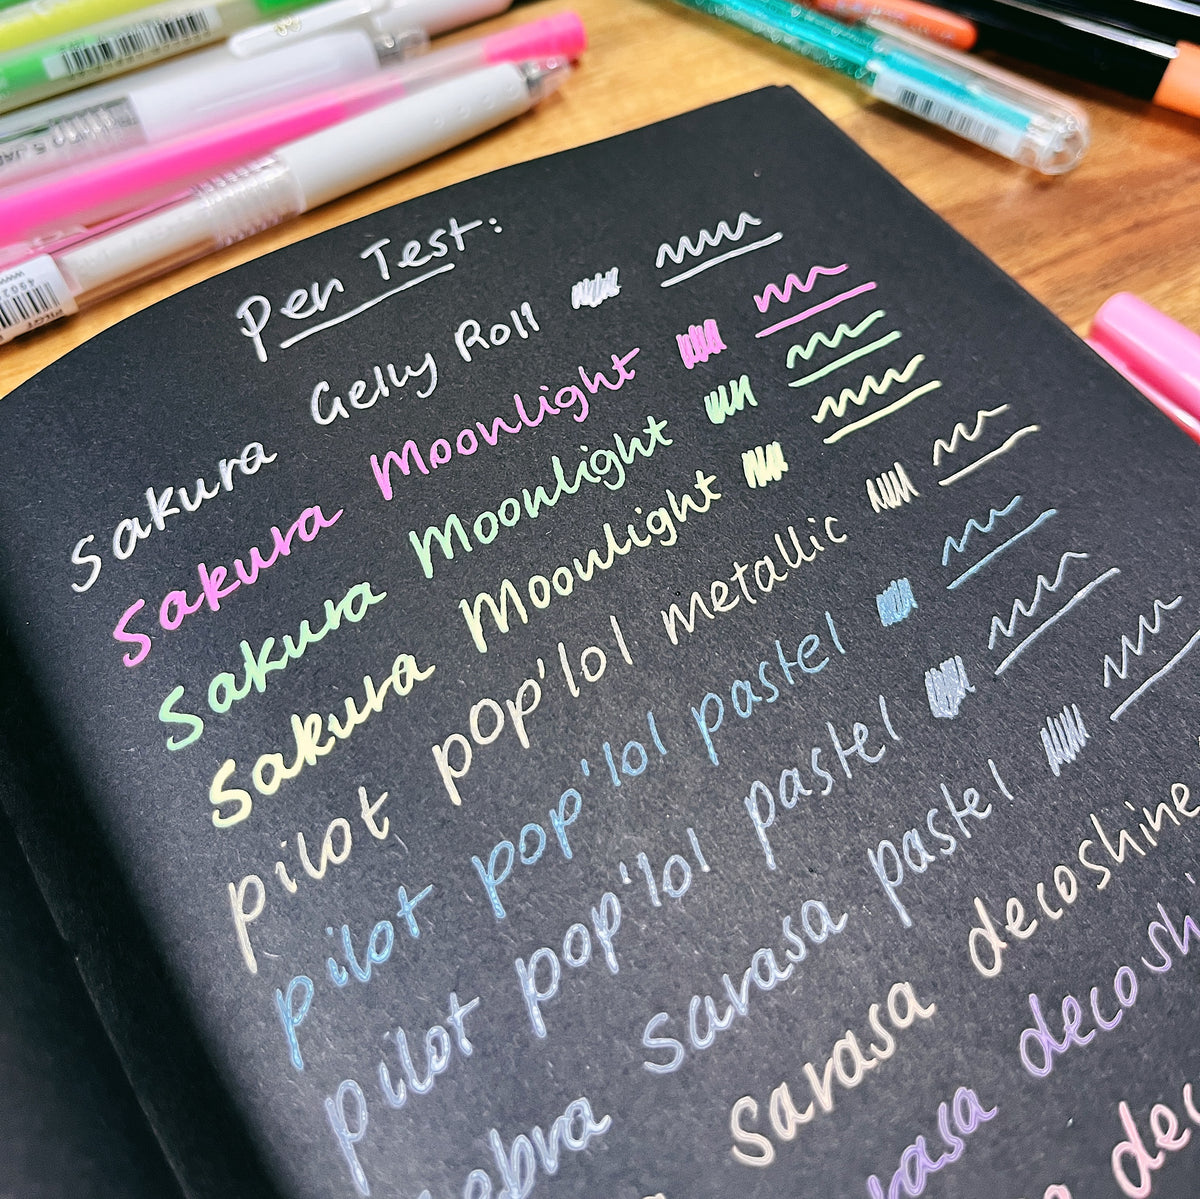 Pen Test:
Sakura Gelly Roll
Sakura Moonlight
Sakura Moonlight
Sakura Moonlight
pilot pop'lol metallic
pilot pop'lol pastel
pilot pop'lol pastel
sarasa pastel
sarasa decoshine